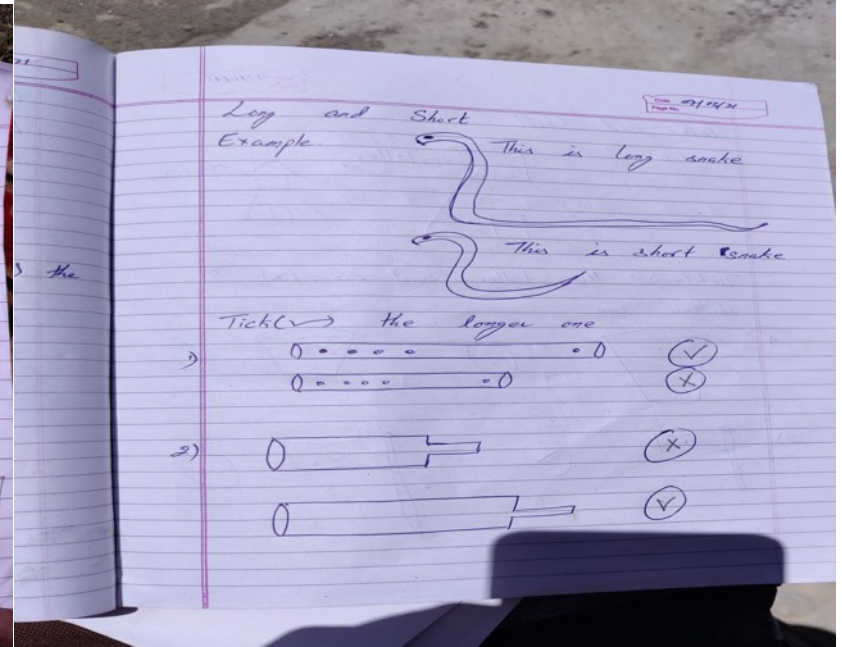 Date
Page No.
Long and Short
Example.
This is long snake
This is short snake
the
Tick(✓) the longer one
1)
✓
✗
2)
✗
✓